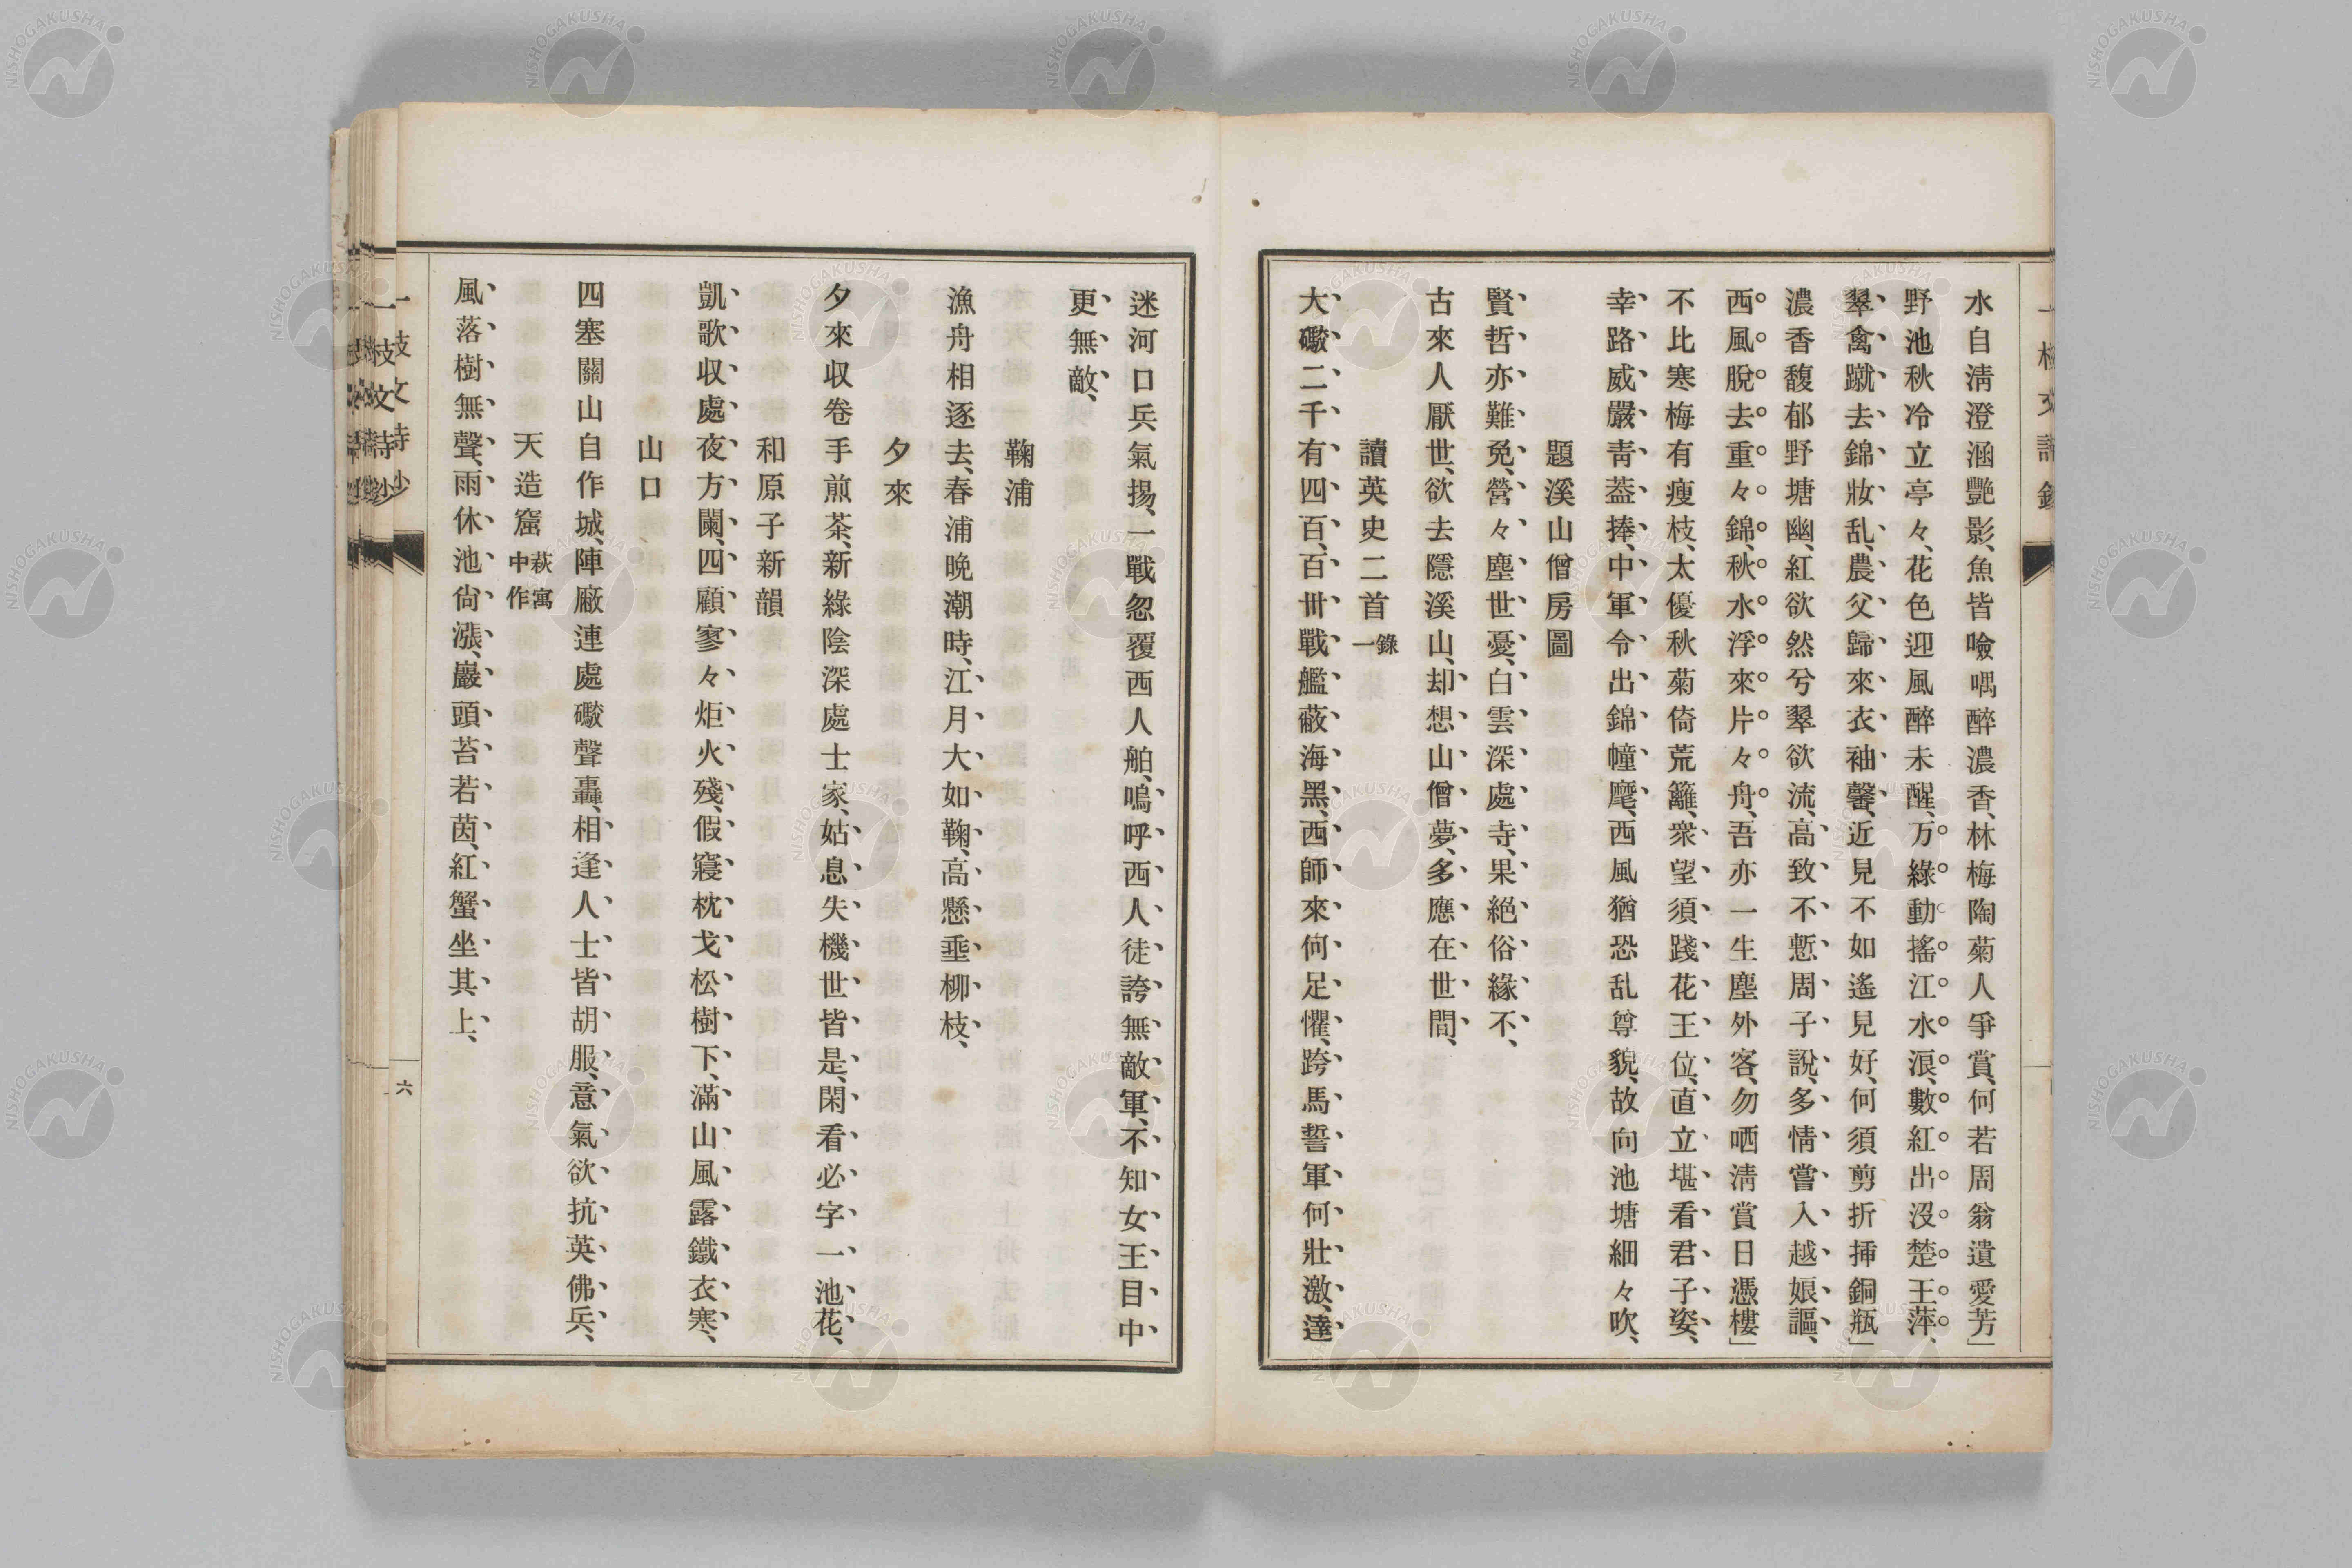 水自淸澄涵艷影、魚皆噞喁醉濃香、林梅陶菊人爭賞、何若周翁遺愛芳」
野池秋冷立亭々、花色迎風醉未醒、万綠動搖江水浪、數紅出沒楚王萍、
翠禽蹴去錦妝乱、農父歸來衣袖馨、近見不如遙見好、何須剪折揷銅瓶」
濃香馥郁野塘幽、紅欲然兮翠欲流、高致不慙周子說、多情嘗入越娘謳、
西風脫去重々錦、秋水浮來片々舟、吾亦一生塵外客、勿哂淸賞日憑樓」
不比寒梅有瘦枝、太優秋菊倚荒籬、衆望須踐花王位、直立堪看君子姿、
幸路威嚴靑葢捧、中軍令出錦幢麾、西風猶恐乱尊貌、故向池塘細々吹、
題溪山僧房圖
賢哲亦難免、營々塵世憂、白雲深處寺、果絕俗緣不、
古來人厭世、欲去隱溪山、却想山僧夢、多應在世間、
讀英史二首錄一
大礮二千有四百、百卅戰艦蔽海黑、西師來何足懼、跨馬誓軍何壯激、達
迷河口兵氣揚、一戰忽覆西人舶、嗚呼西人徒誇無敵軍、不知女王目中
更無敵、
鞠浦
漁舟相逐去、春浦晚潮時、江月大如鞠、高懸垂柳枝、
夕來
夕來収卷手煎茶、新綠陰深處士家、姑息失機世皆是、閑看必字一池花、
和原子新韻
凱歌収處夜方闌、四顧寥々炬火殘、假寢枕戈松樹下、滿山風露鐵衣寒、
山口
四塞關山自作城、陣廠連處礮聲轟、相逢人士皆胡服、意氣欲抗英佛兵、
天造窟萩寓中作
風落樹無聲、雨休池尙漲、巖頭苔若茵、紅蟹坐其上、
六